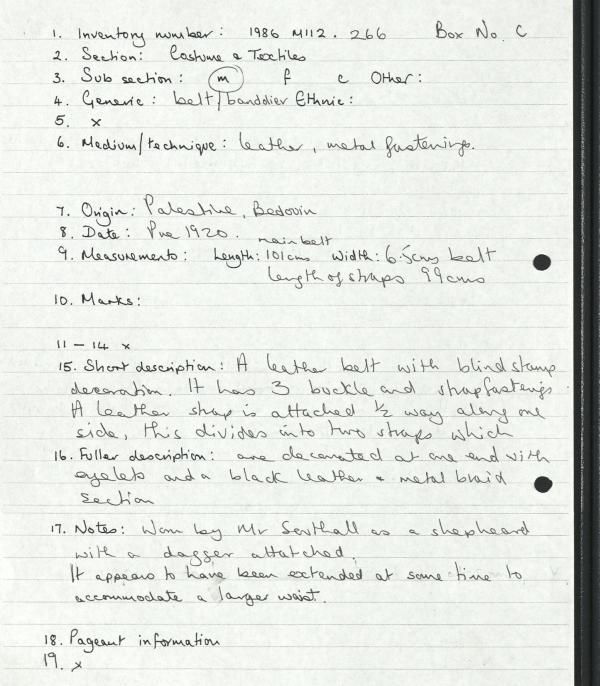 1. Inventory number: 1986 M112. 266 Box No. C
2. Section: Costume & Textiles
3. Sub section: m f c Other:
4. Generic: belt/banddier Ethnic:
5. x
6. Medium/technique: leather, metal fastenings.
7. Origin: Palestine, Bedouin
8. Date: Pre 1920.
main belt
9. Measurements: Length: 101cms Width: 6.5cms belt
length of straps 99cms
10. Marks:
11 - 14 x
15. Short description: A leather belt with blind stamp
decoration. It has 3 buckle and strap fastenings
A leather strap is attached ½ way along one
side, this divides into two straps which
16. Fuller description: are decorated at one end with
eyelets and a black leather & metal braid
section
17. Notes: Worn by Mr Southall as a shepheard
with a dagger attatched.
It appears to have been extended at some time to
accommodate a larger waist.
18. Pageant information
19. x